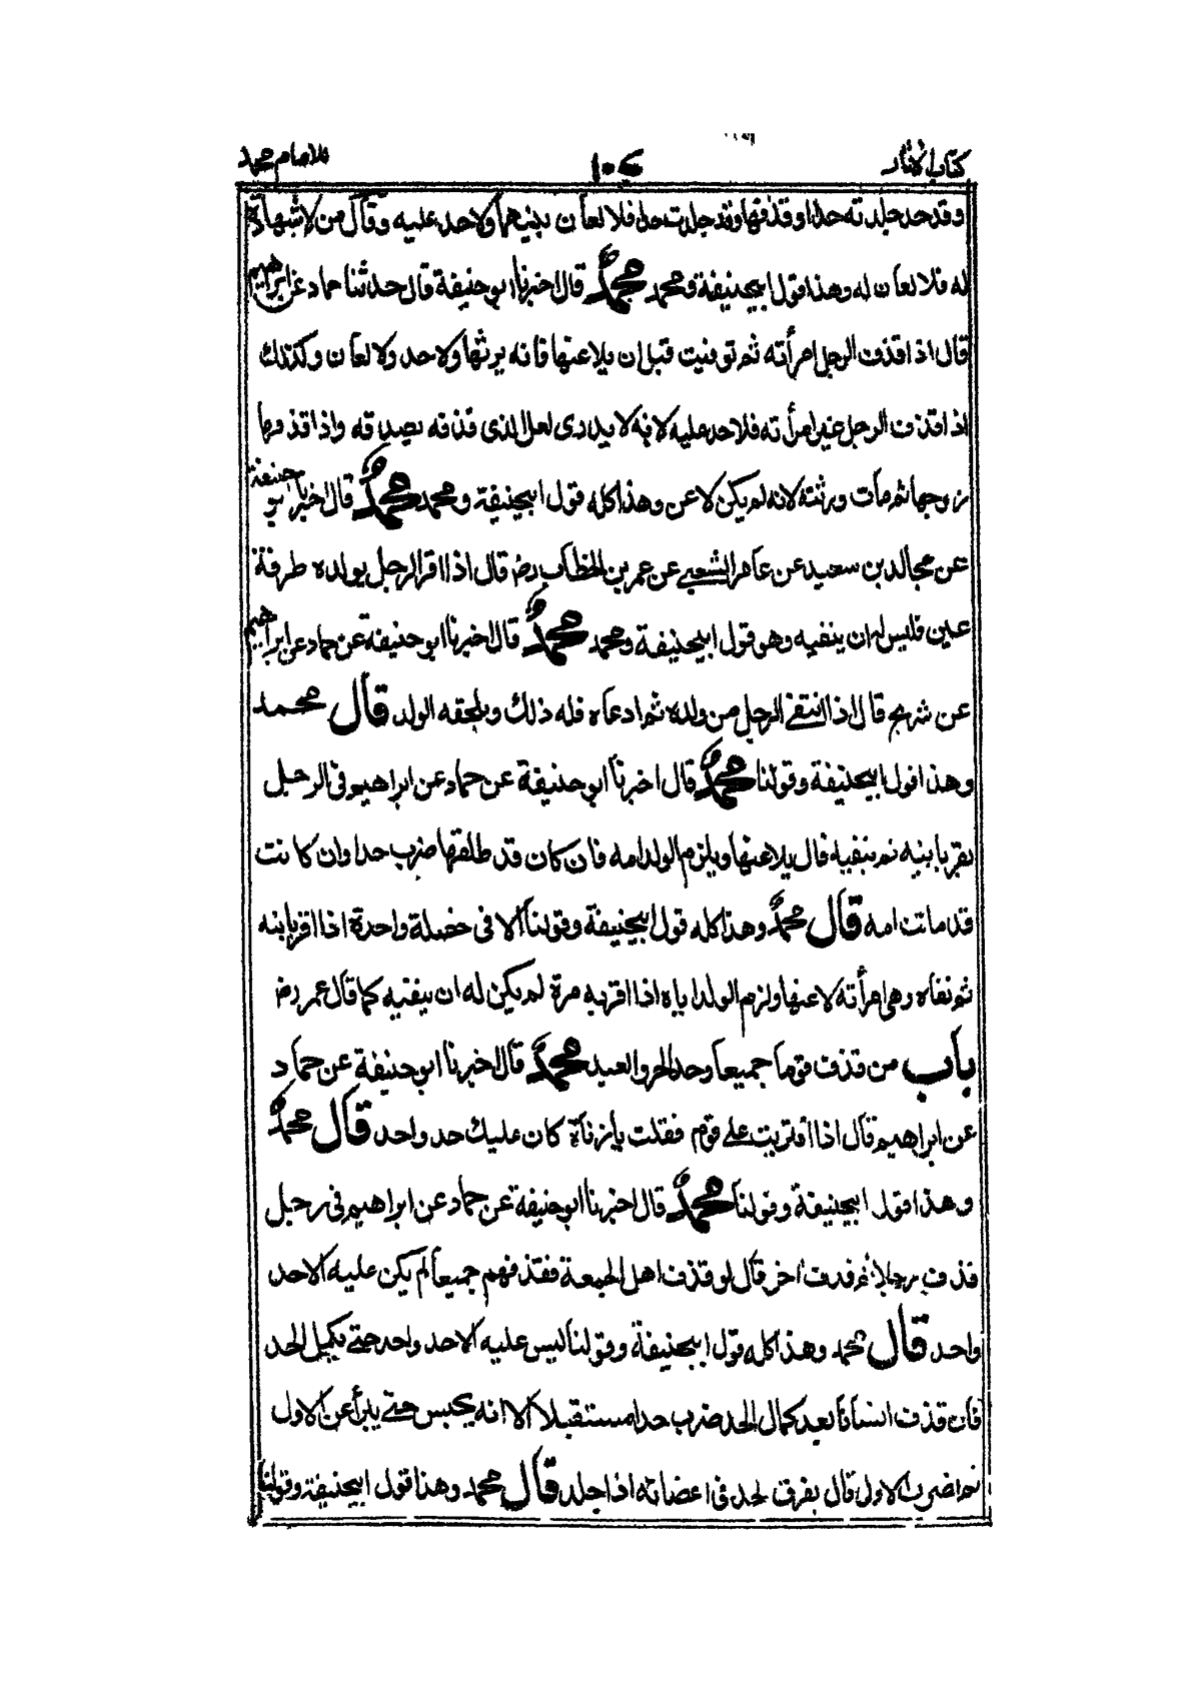 كتاب الآثار ١٠٤ للامام محمد
وقد حد جلدته حدا او قذفها وقد جلدت حدا فلا لعان بينهما ولا حد عليه وقال من لا شهادة
له فلا لعان له وهذا قول ابيحنيفة ومحمد محمدٌ قال اخبرنا ابو حنيفة قال حدثنا حماد عن ابراهيم
قال اذا قذف الرجل امرأته ثم توفيت قبل ان يلاعنها فانه يرثها ولا حد ولا لعان وكذلك
اذا قذف الرجل غير امرأته فلا حد عليه لانه لا يدرى لعل الذى قذفه يصدقه واذا قذفها
زوجها ثم مات ورثته لانه لم يكن لاعن وهذا كله قول ابيحنيفة ومحمد محمدٌ قال اخبرنا ابو حنيفة
عن مجالد بن سعيد عن عامر الشعبي عن عمر بن الخطاب رض قال اذا اقر الرجل بولده طرفة
عين فليس له ان ينفيه وهو قول ابيحنيفة ومحمد محمدٌ قال اخبرنا ابو حنيفة عن حماد عن ابراهيم
عن شريح قال اذا انتفى الرجل من ولده ثم ادعاه فله ذلك ويلحقه الولد قال محمد
وهذا قول ابيحنيفة وقولنا محمدٌ قال اخبرنا ابو حنيفة عن حماد عن ابراهيم فى الرجل
يقر بابنه ثم ينفيه قال يلاعنها ويلزم الولد امه فان كان قد طلقها ضرب حدا وان كانت
قد ماتت امه قال محمدٌ وهذا كله قول ابيحنيفة وقولنا الا فى خصلة واحدة اذا اقر بابنه
ثم نفاه وهى امرأته لاعنها ولزم الولد اباه اذا اقر به مرة لم يكن له ان ينفيه كما قال عمر رض
باب من قذف قوما جميعا وحد الحر والعبد محمدٌ قال اخبرنا ابو حنيفة عن حماد
عن ابراهيم قال اذا افتريت على قوم فقلت يا زناة كان عليك حد واحد قال محمدٌ
وهذا قول ابيحنيفة وقولنا محمدٌ قال اخبرنا ابو حنيفة عن حماد عن ابراهيم فى رجل
قذف رجلا ثم قذف اخر قال لو قذف اهل الجمعة فقذفهم جميعا لم يكن عليه الا حد
واحد قال محمد وهذا كله قول ابيحنيفة وقولنا ليس عليه الا حد واحد حتى يكمل الحد
فان قذف انسانا بعد كمال الحد ضرب حدا مستقبلا الا انه يحبس حتى يبرأ عن الاول
ثم اضرب الاول قال يفرق الحد فى اعضائه اذا جلد قال محمد وهذا قول ابيحنيفة وقولنا